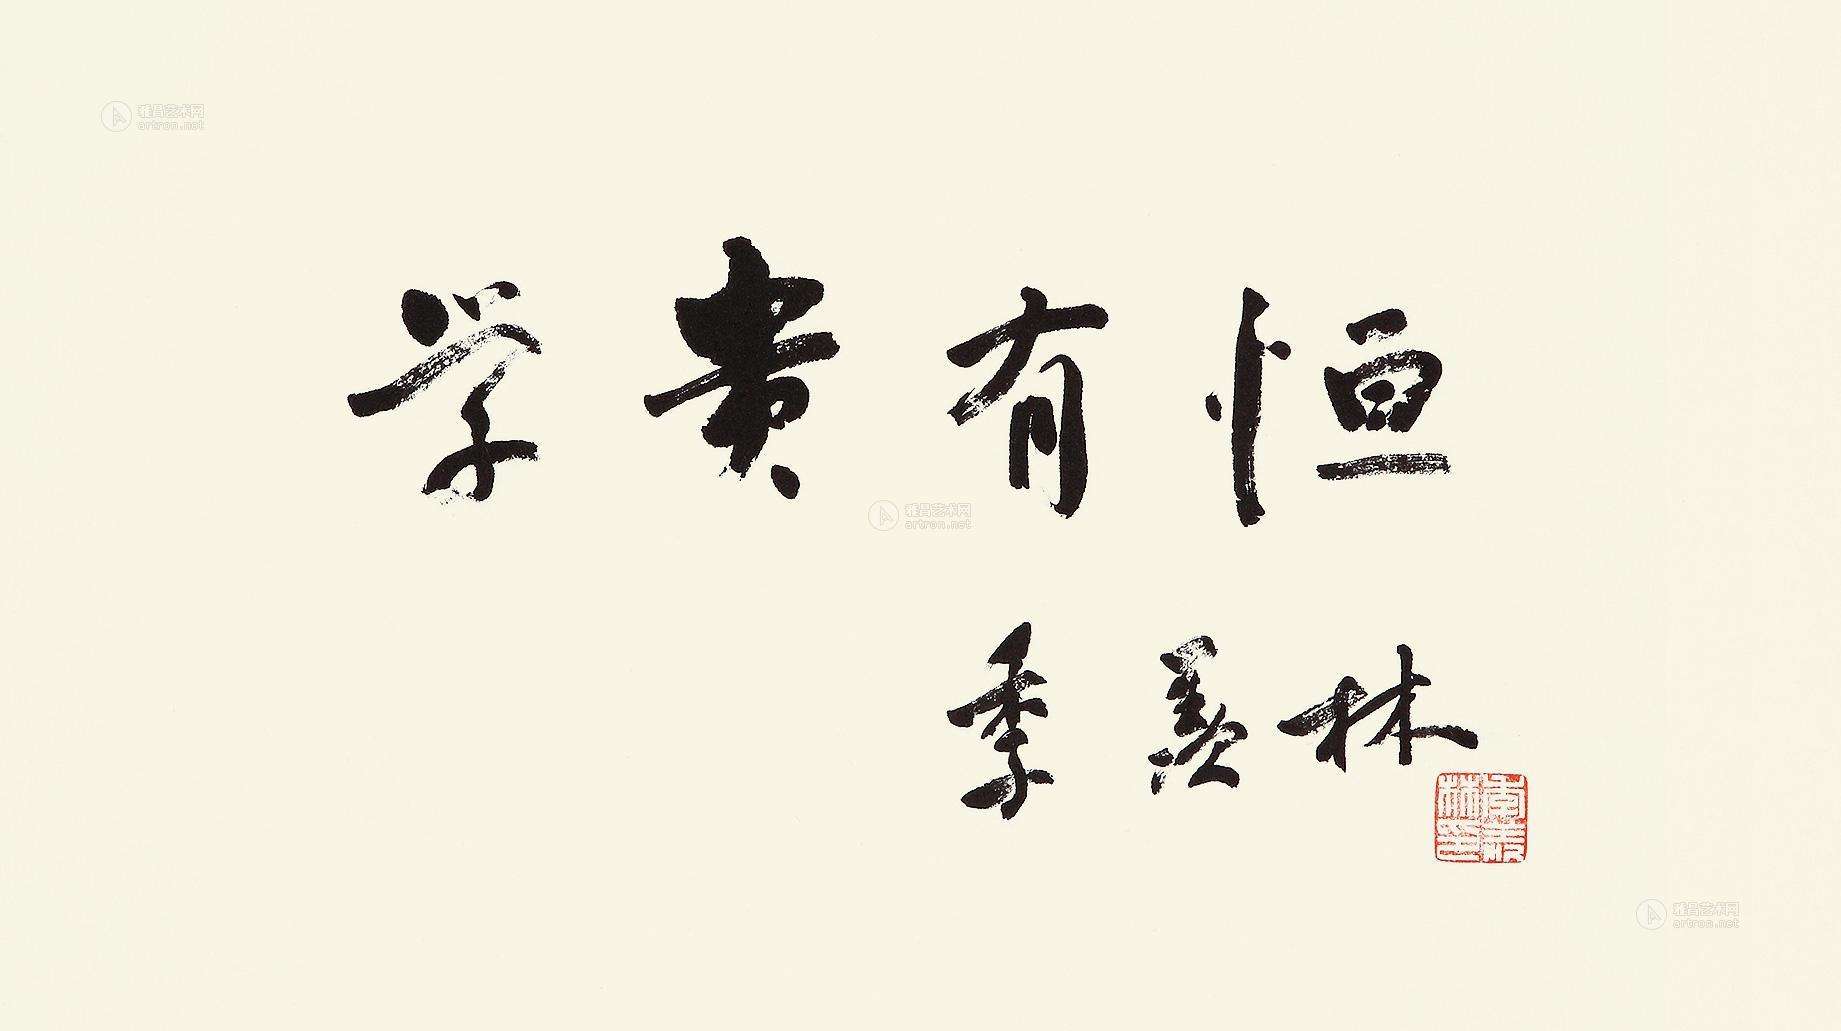 雅昌艺术网
artron.net
学贵有恒
雅昌艺术网
artron.net
季羡林
季羡林印
雅昌艺术网
artron.net